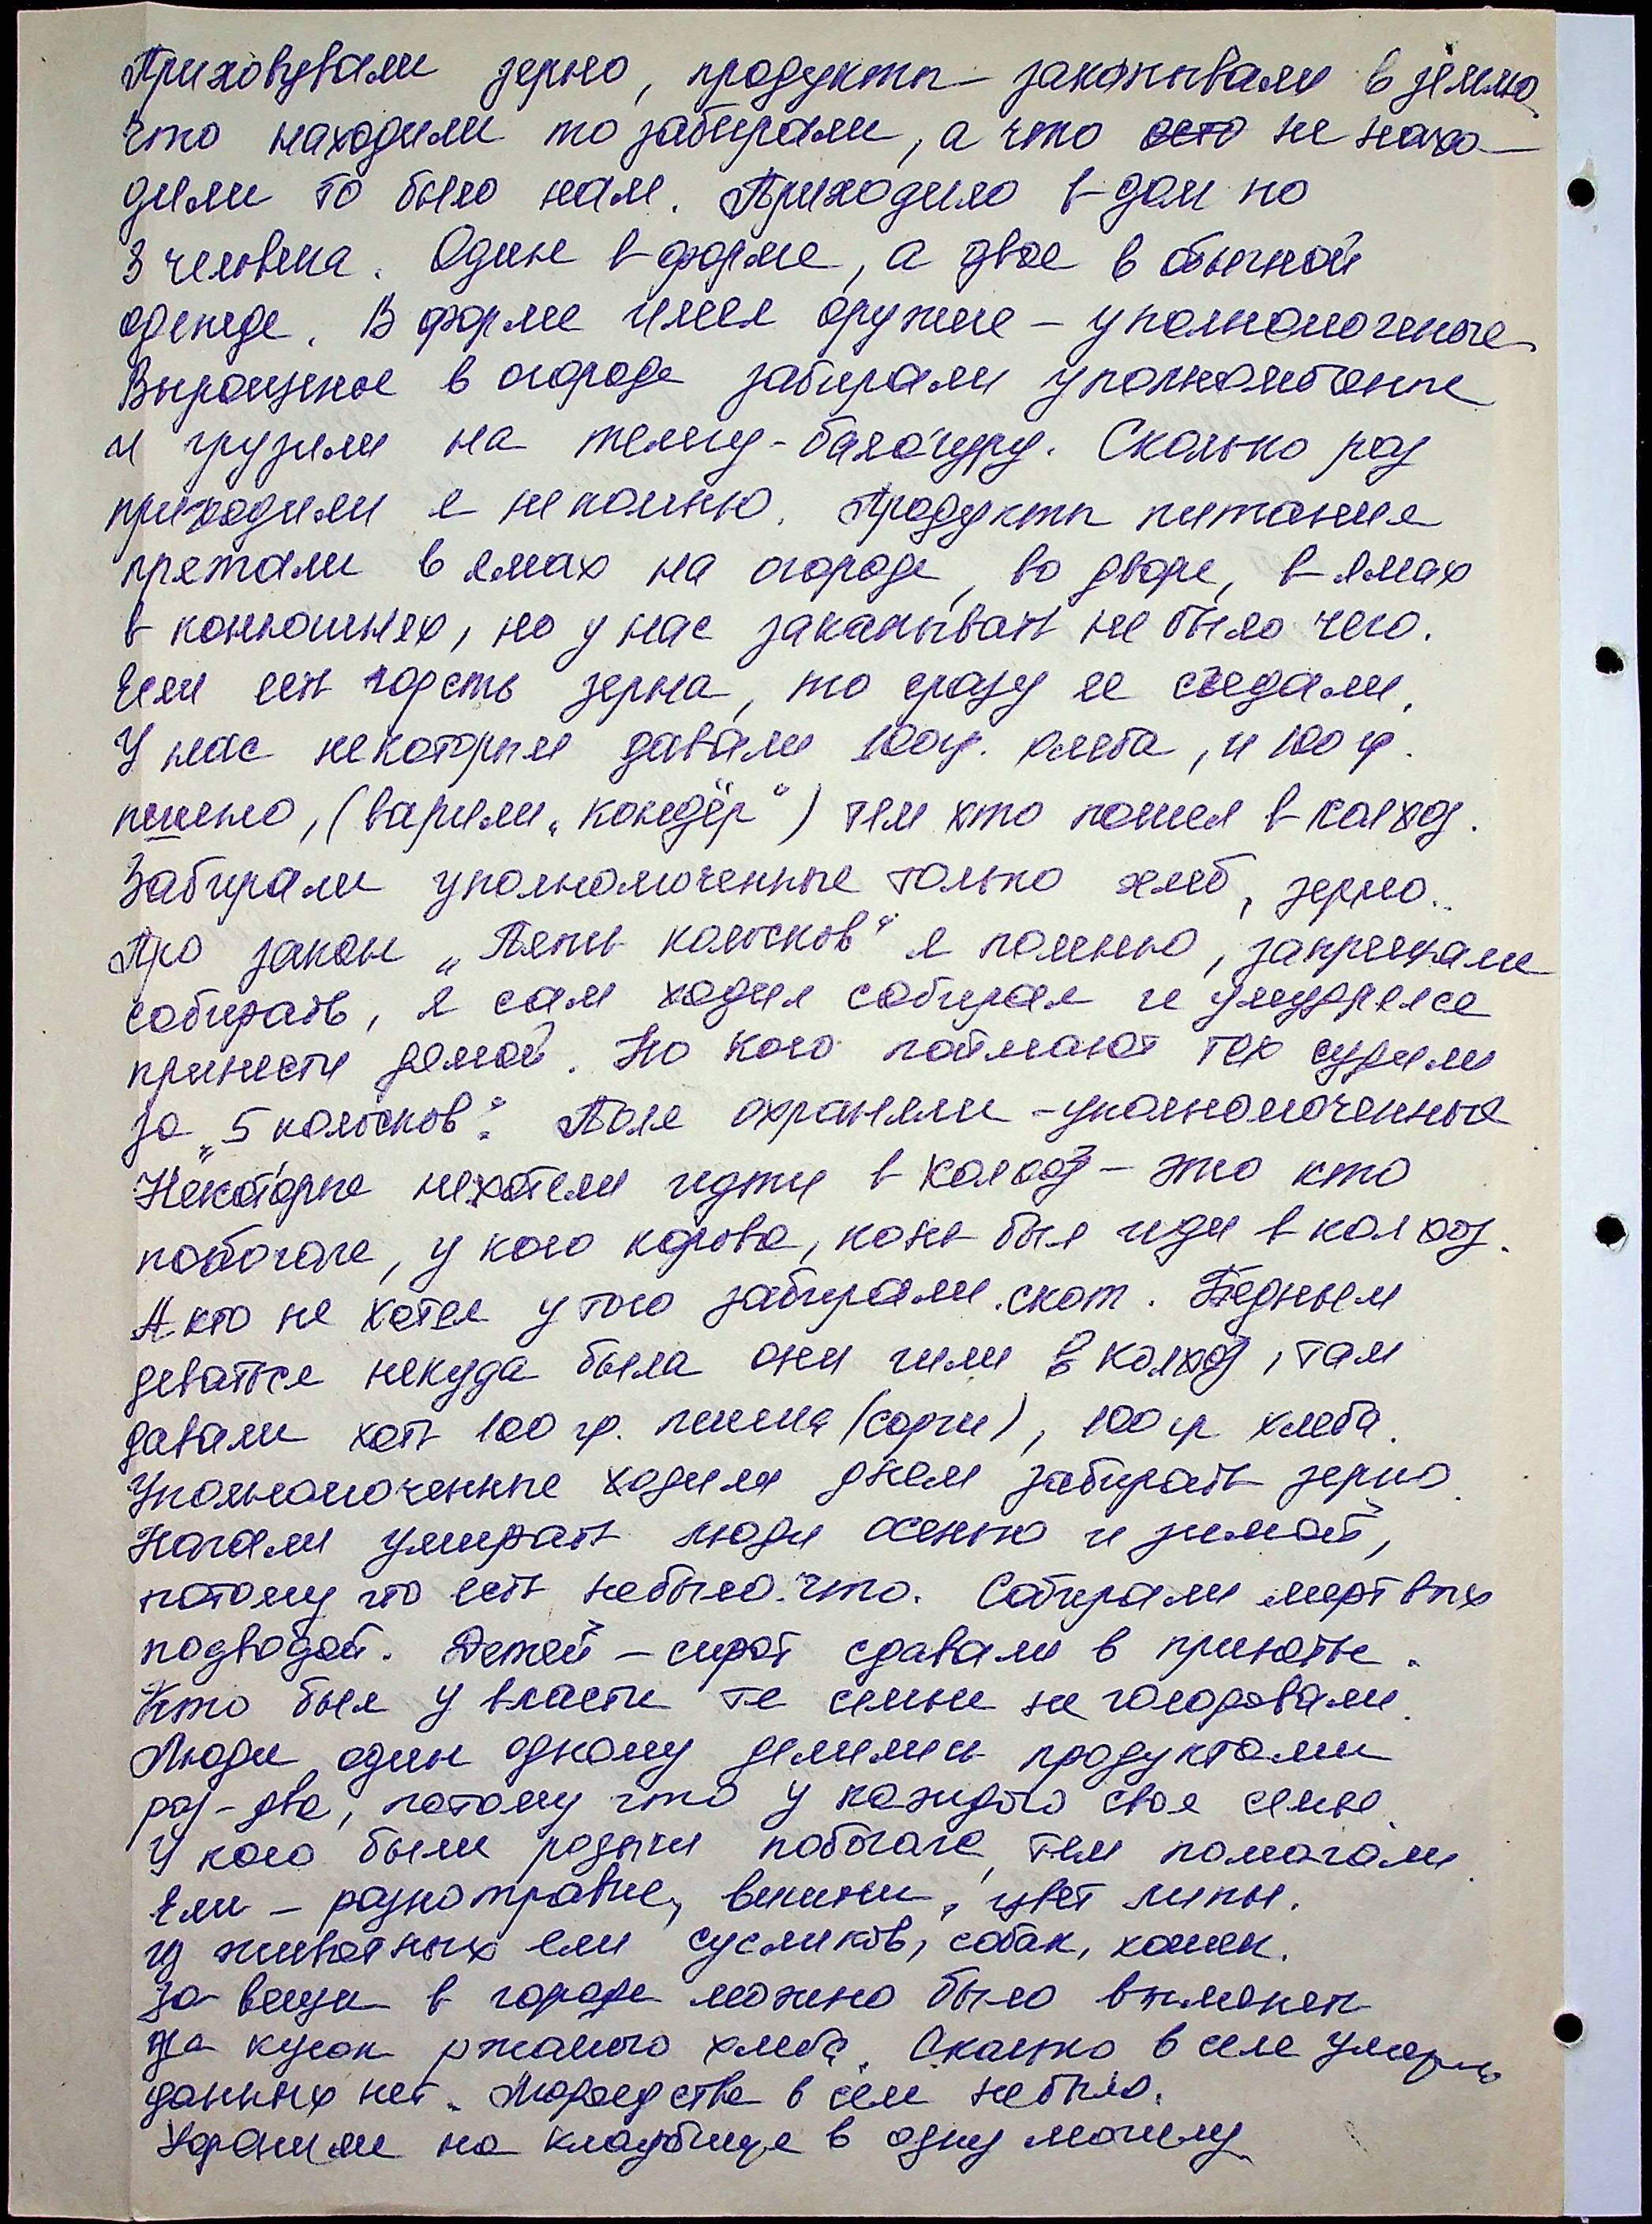 Приховували зерно, продукты – закапывали в землю
что находили то забирали, а что не нахо-
дили то было нам. Приходило в дом по
3 человека. Один в форме, а двое в обычной
одежде. В форме имел оружие – уполномоченые
Выращеное в огороде забирали уполномоченые
и грузили на телегу-балагуру. Сколько раз
приходили я непомню. Продукты питания
прятали в ямах на огороде, во дворе, в ямах
в конюшнях, но у нас закапывать не было чего.
Если есть горсть зерна, то сразу ее съедали.
У нас некоторым давали 100гр. хлеба, и 100 гр.
пшено, (варили „кондёр“) тем кто пошел в колхоз.
Забирали уполномоченные только хлеб, зерно..
Про закон „Пять колосков“ я помню, запрещали
собирать, я сам ходил собирал и умудрялся
принести домой. Но кого поймают тех судили
за „5 колосков“. Поля охраняли – уполномоченные
Некоторые нехотели идти в колхоз – это кто
побогаче, у кого корова, конь был иди в колхоз.
А кто не хотел у того забирали скот. Бедным
деваться некуда было они шли в колхоз, там
давали хоть 100 гр. пшена (сорги), 100 гр хлеба.
Уполномоченные ходили днем забирать зерно.
Начали умирать люди осенью и зимой,
потому что есть небыло что. Собирали мертвых
подводой. Детей – сирот сдавали в приюты.
Кто был у власти те семьи не голодовали.
Люди один одному делились продуктами
раз-два, потому что у каждого своя семья.
У кого были родычи побогаче, тем помогали.
Ели – разнотравие, вишни, цвет липы.
Из животных ели сусликов, собак, кошек.
За вещи в городе можно было выменять
на кусок ржаного хлеба. Сколько в селе умерло
данных нет. Людоедства в селе небыло.
Хоранили на кладбище в одну могилу